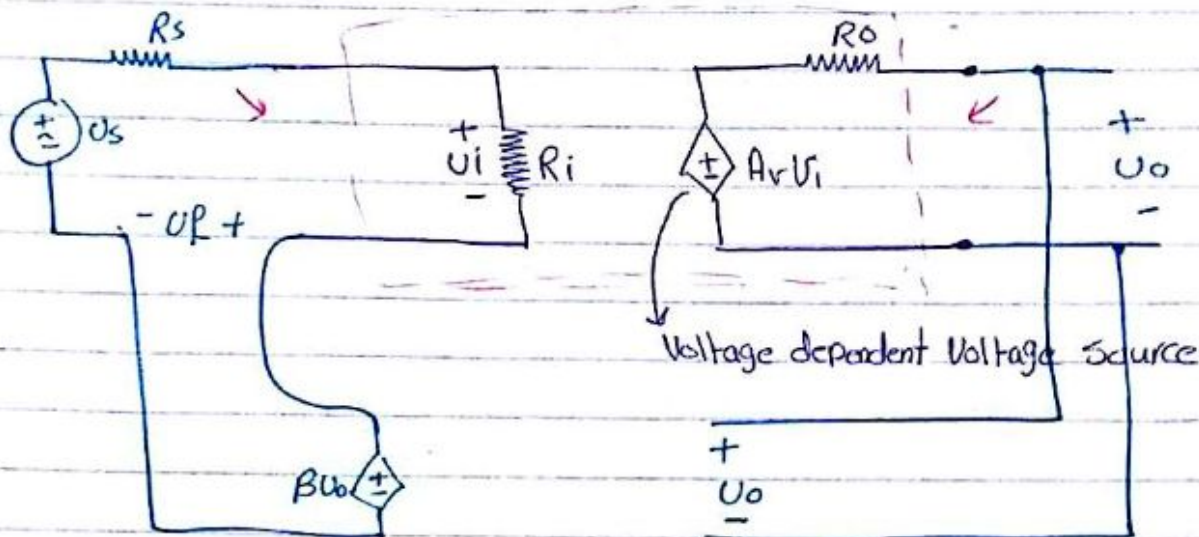 Rs
Ro
+
-
Us
+
Ui
-
Ri
+
-
AvVi
+
Uo
-
- Uf +
Voltage dependent Voltage Source
βUo
+
-
+
Uo
-